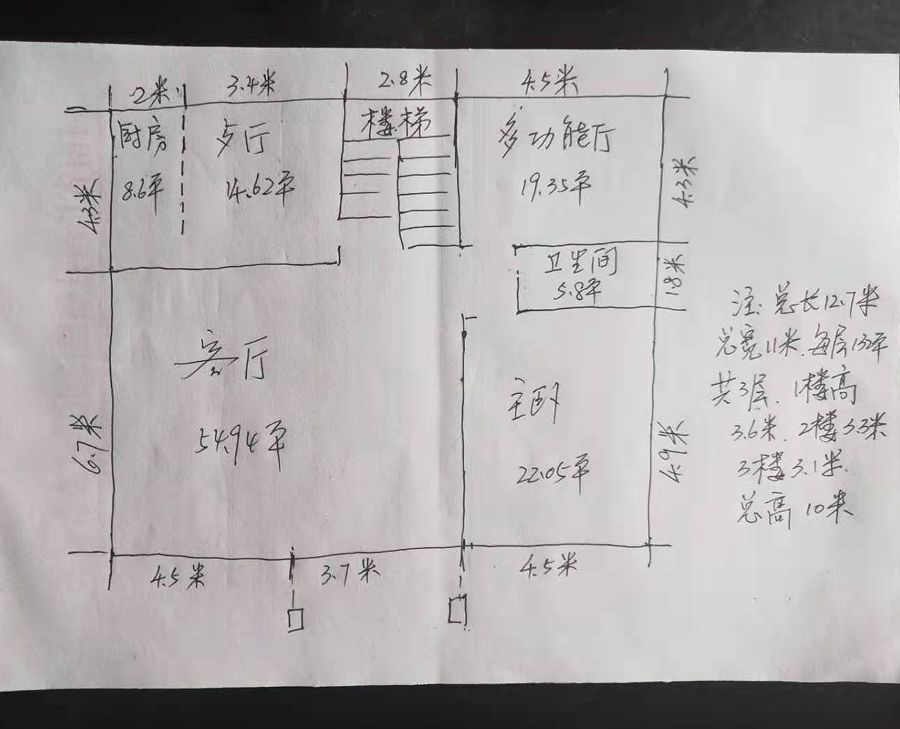 2米
3.4米
2.8米
4.5米
厨房
8.6平
歺厅
14.62平
楼梯
多功能厅
19.35平
4.3米
4.3米
卫生间
5.8平
1.8米
客厅
54.94平
6.7米
主卧
22.05平
4.9米
4.5米
3.7米
4.5米
注:总长12.7米
总宽11米.每层139平
共3层.1楼高
3.6米.2楼3.3米
3楼3.1米.
总高10米